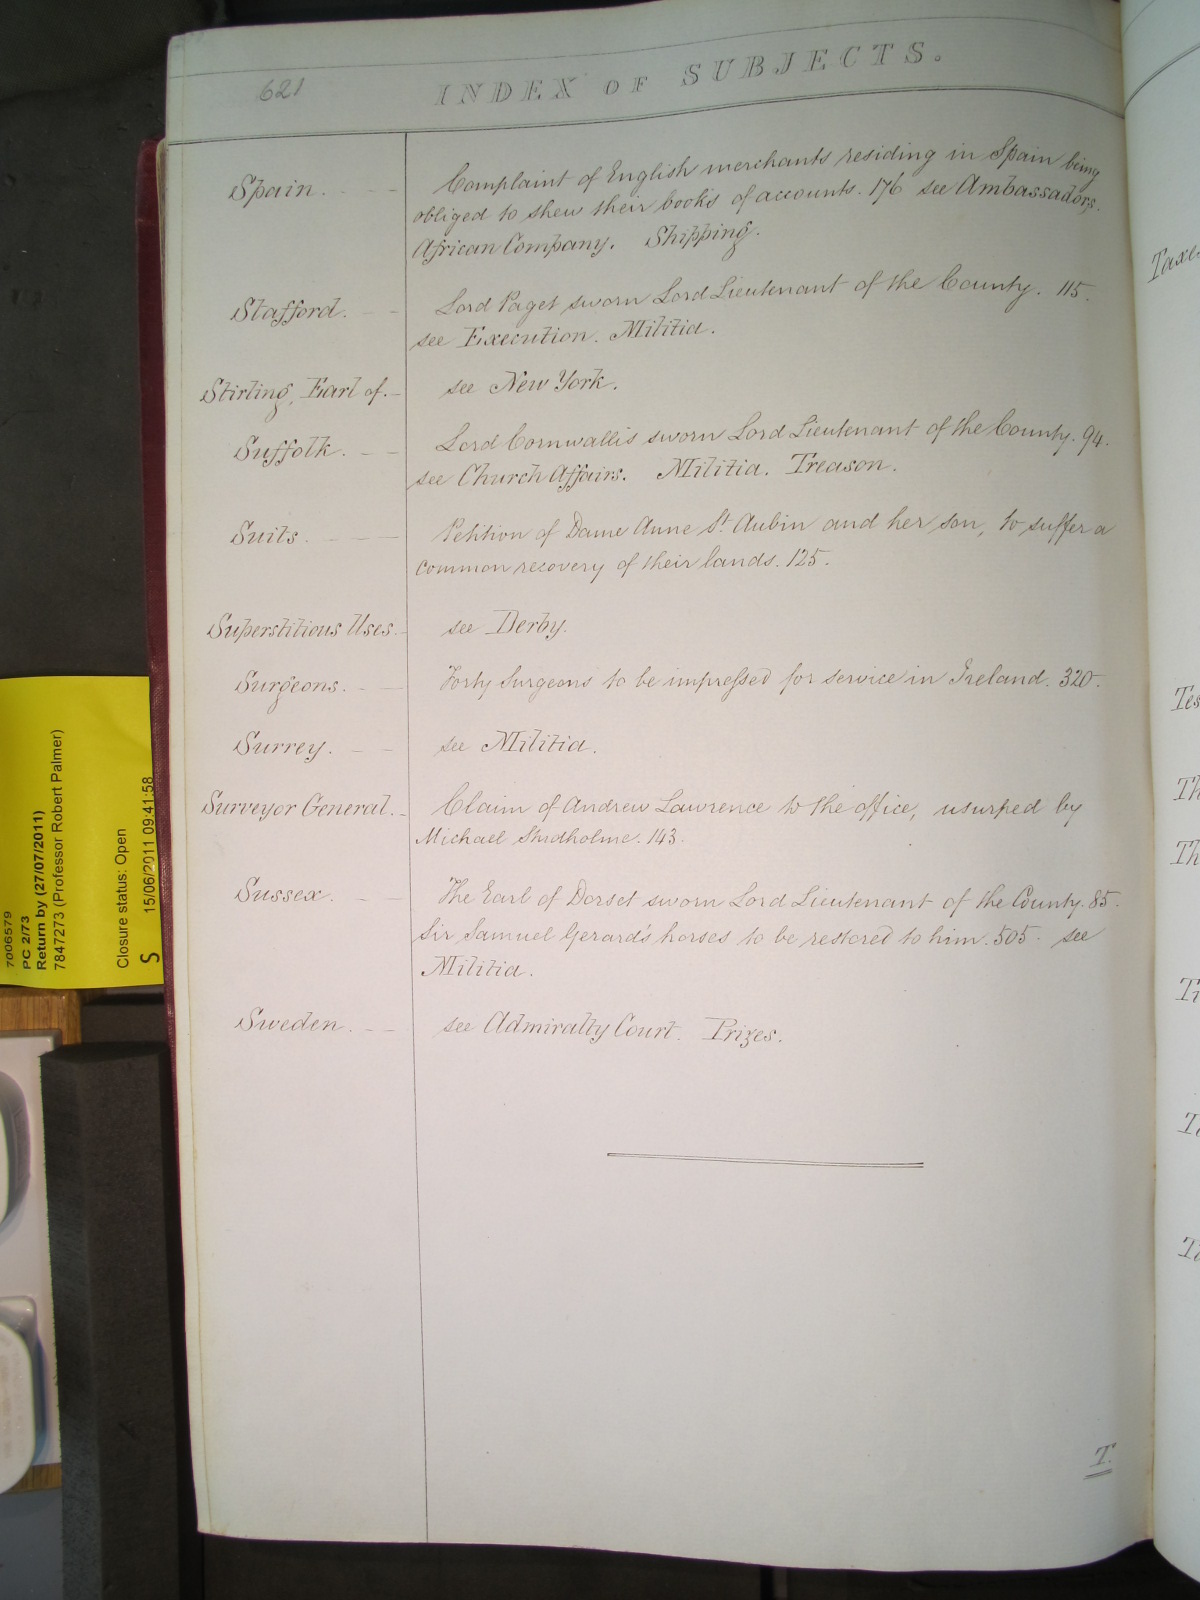 621
INDEX OF SUBJECTS.
Spain.
Complaint of English merchants residing in Spain being
obliged to shew their books of accounts. 176 see Ambassadors.
African Company. Shipping.
Stafford.
Lord Paget sworn Lord Lieutenant of the County. 115.
see Execution. Militia.
Stirling, Earl of.
see New York.
Suffolk.
Lord Cornwallis sworn Lord Lieutenant of the County. 94.
see Church Affairs. Militia. Treason.
Suits
Petition of Dame Anne St. Aubin and her son, to suffer a
common recovery of their lands. 125.
Superstitious Uses.
see Derby.
Surgeons.
Forty Surgeons to be impressed for service in Ireland. 320.
Surrey.
see Militia.
Surveyor General.
Claim of Andrew Lawrence to the office, usurped by
Michael Studholme. 143.
Sussex.
The Earl of Dorset sworn Lord Lieutenant of the County. 85.
Sir Samuel Gerard's horses to be restored to him. 505. see
Militia.
Sweden.
see Admiralty Court. Prizes.
T.
7006579
PC 2/73
Return by (27/07/2011)
7847273 (Professor Robert Palmer)
Closure status: Open
S 15/06/2011 09:41:58
Taxe
Tes
Th
Th
Ti